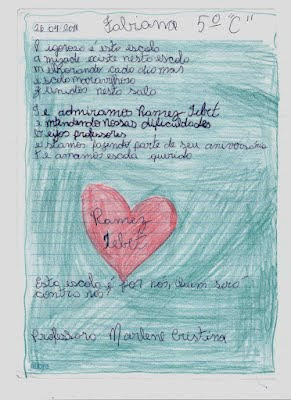 26-09-2011 Fabiana 5º "C"
R igorosa é esta escola
a mizade existe nesta escola
m elhorando cada dia mas
e scola maravilhosa
Z unidos nesta sala
T e admiramos Ramez Tebet
e ntendendo nossas dificuldades
b eijos professores
e stamos fazendo parte de seu aniversário
T e amamos escola querida
Ramez
Tebet
Esta escola é por nos, quem será
contra nós?
Professora Marlene Cristina